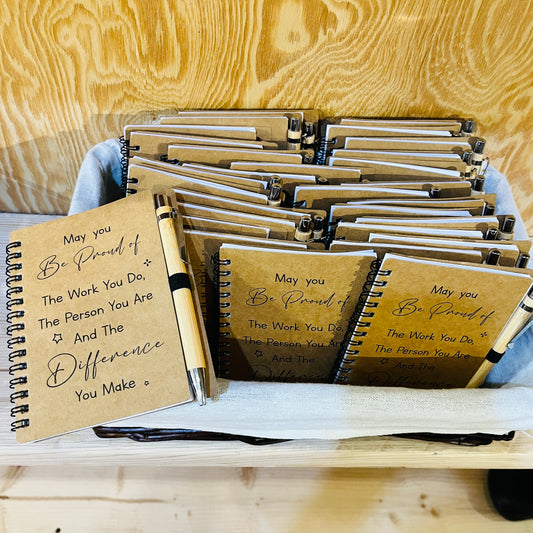 May you
Be Proud of
The Work You Do,
The Person You Are
And The
Difference
You Make
May you
Be Proud of
The Work You Do,
The Person You Are
And The
Difference
May you
Be Proud of
The Work You Do,
The Person You Are
And The
Difference